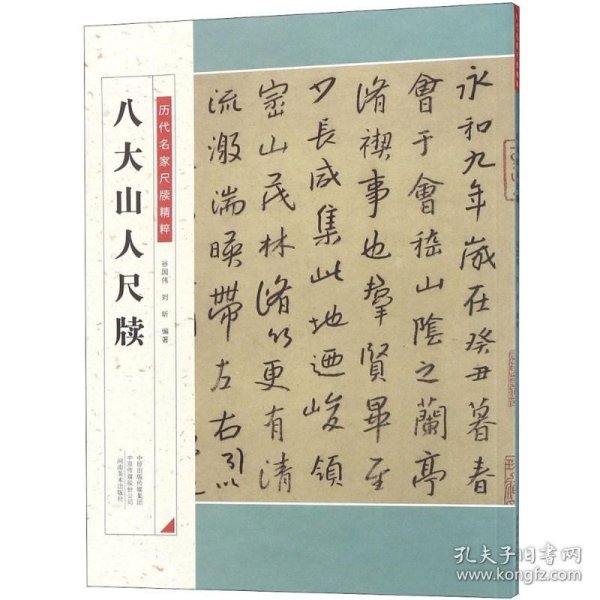 历代名家尺牍精粹
八大山人尺牍
谷国伟 刘昕 编著
中原出版传媒集团
中原传媒股份公司
河南美术出版社
永和九年歲在癸丑暮春
會于會嵇山陰之蘭亭
脩禊事也羣賢畢至
少長咸集此地迺峻領
崈山茂林脩竹更有清
流激湍暎帶左右引以
孔夫子旧书网
www.kongfz.com